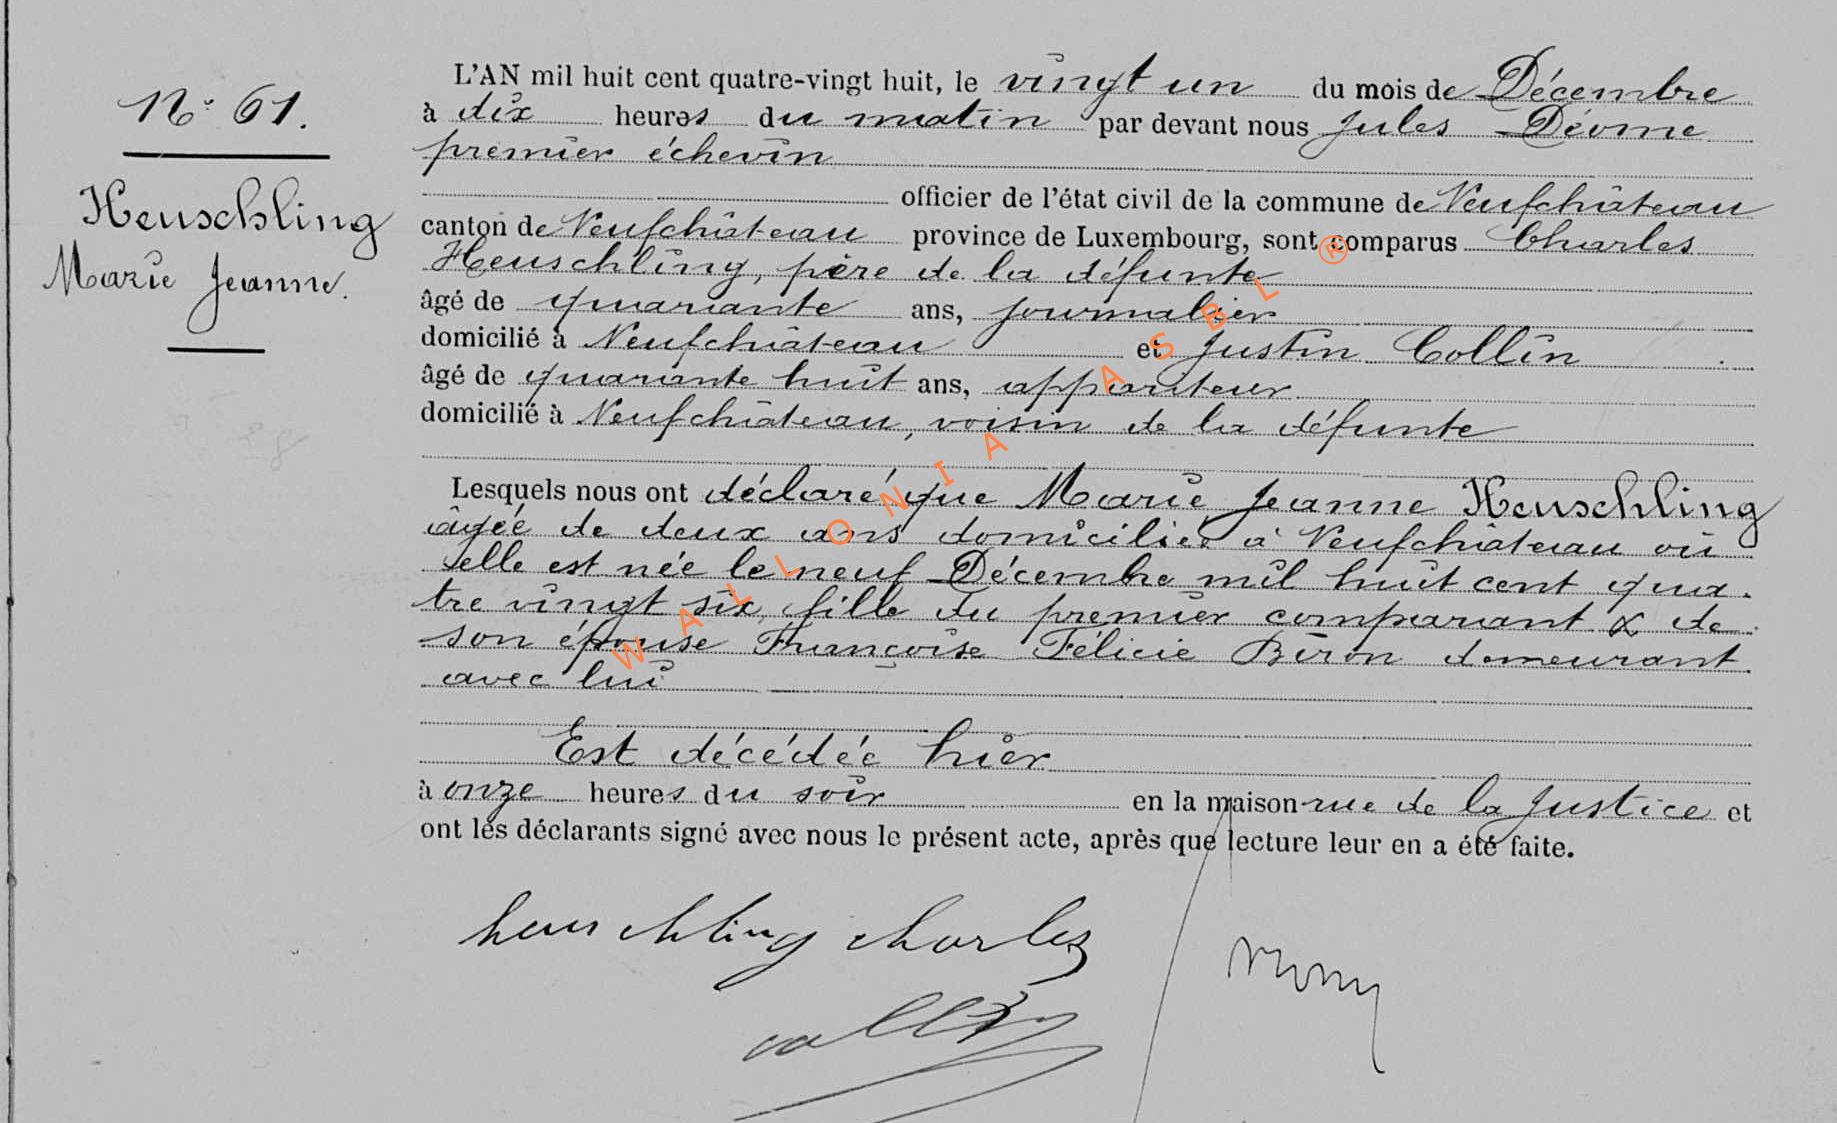 N° 61.
Heuschling
Marie Jeanne.
L'AN mil huit cent quatre-vingt huit, le vingt un du mois de Décembre
à dix heures du matin par devant nous Jules Déome
premier échevin
officier de l'état civil de la commune de Neufchâteau
canton de Neufchâteau province de Luxembourg, sont comparus Charles
Heuschling, père de la défunte
âgé de quarante ans, journalier
domicilié à Neufchâteau et Justin Collin
âgé de quarante huit ans, appariteur
domicilié à Neufchâteau, voisin de la défunte
Lesquels nous ont déclaré que Marie Jeanne Heuschling
âgée de deux ans domiciliée à Neufchâteau où
elle est née le neuf Décembre mil huit cent qua-
tre vingt six, fille du premier comparant & de
son épouse Françoise Félicie Biron demeurant
avec lui
Est décédée hier
à onze heures du soir en la maison rue de la Justice et
ont les déclarants signé avec nous le présent acte, après que lecture leur en a été faite.
heuschling charles
WALLONIA ASBL ®